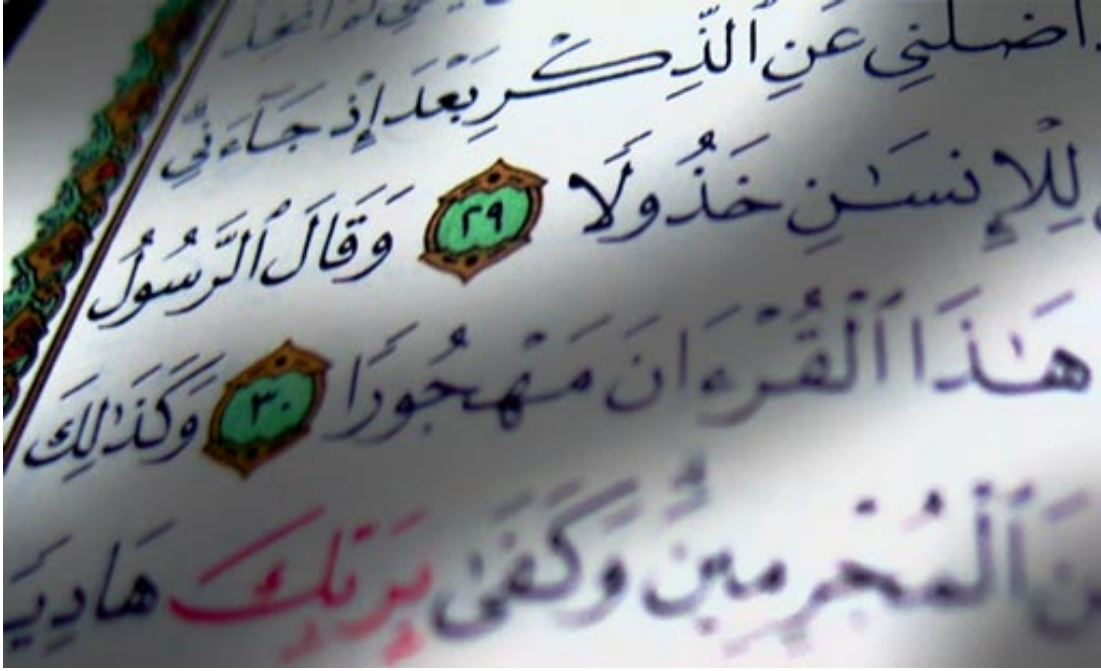 أضلني عَنِ ٱلذِّكْرِ بَعْدَ إِذْ جَآءَنِي
لِلْإِنسَٰنِ خَذُولًا ٢٩ وَقَالَ ٱلرَّسُولُ
هَٰذَا ٱلْقُرْءَانَ مَهْجُورًا ٣٠ وَكَذَٰلِكَ
ٱلْمُجْرِمِينَ وَكَفَىٰ بِرَبِّكَ هَادِيًا